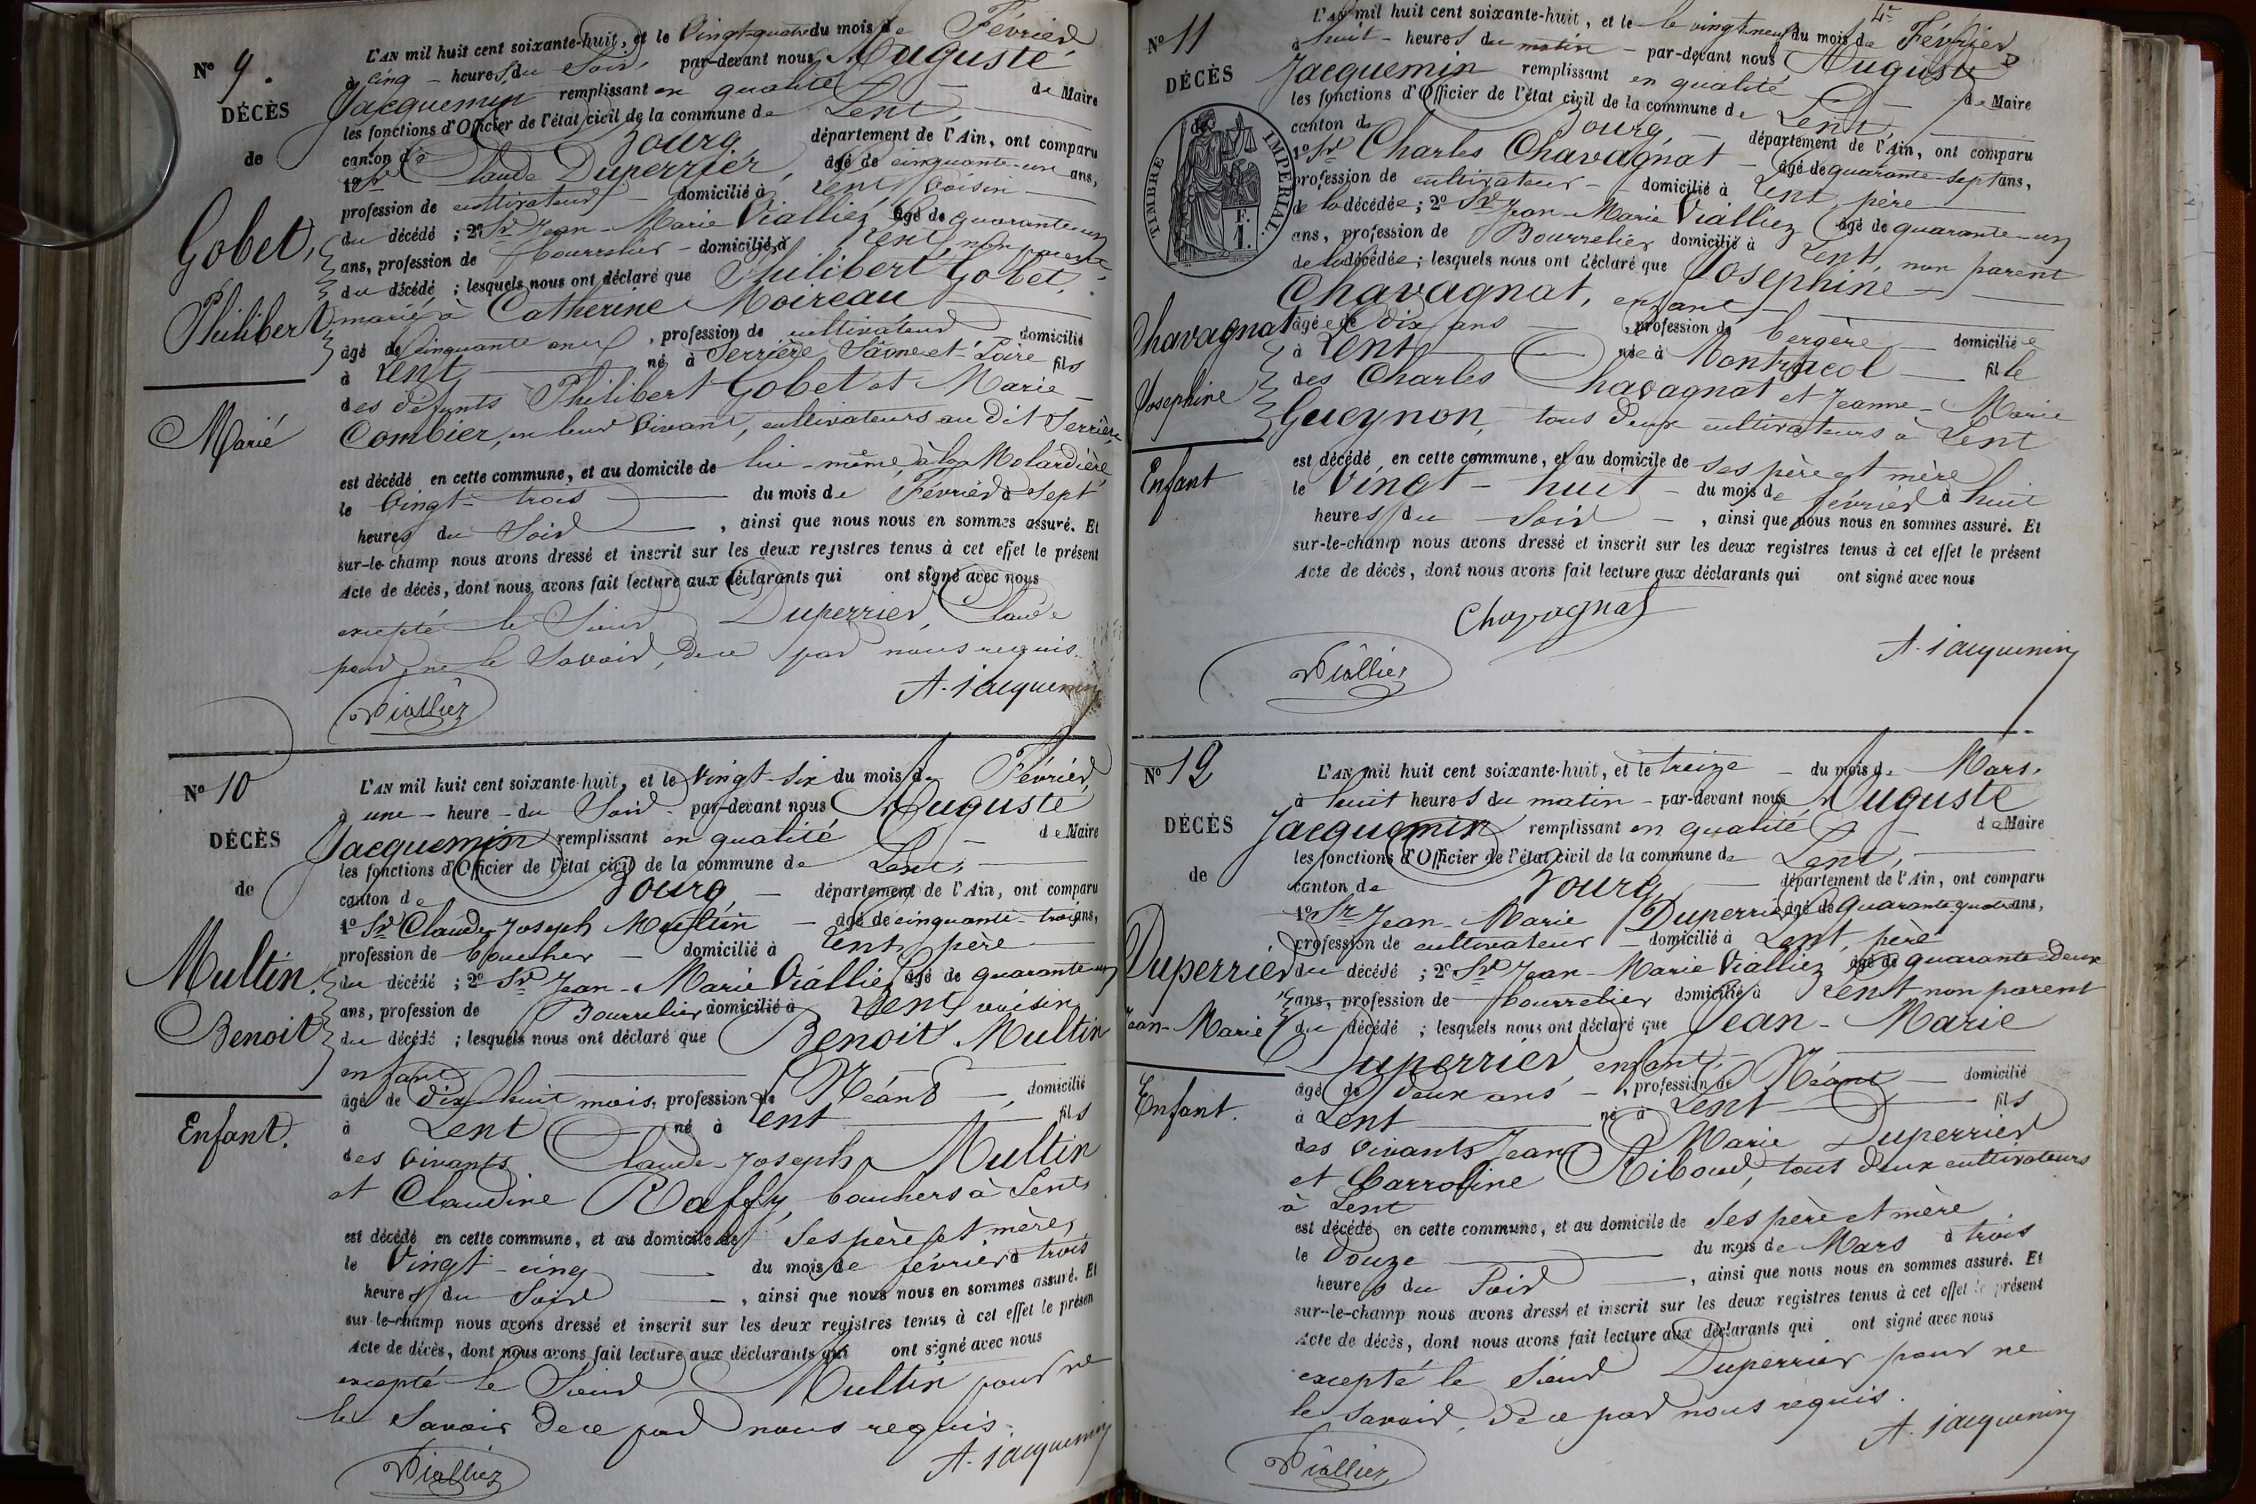 N° 9.
DÉCÈS
de
Gobet,
Philibert
Marié
L'AN mil huit cent soixante-huit, et le Vingt-quatre du mois de Février,
à cinq - heures du Soir, par-devant nous Auguste
Jacquemin remplissant en qualité de Maire
les fonctions d'Officier de l'état civil de la commune de Lent,
canton de Bourg, département de l'Ain, ont comparu
1° Sr Claude Duperrier, âgé de cinquante-un ans,
profession de cultivateur - domicilié à Lent, voisin
du décédé ; 2° Sr Jean-Marie Vialliez âgé de quarante-un
ans, profession de bourrelier - domicilié à Lent, non parent
du décédé ; lesquels nous ont déclaré que Philibert Gobet,
marié à Catherine Moireau
âgé de Cinquante ans, profession de cultivateur domicilié
à Lent né à Serrière Saône-et-Loire fils
des défunts Philibert Gobet et Marie
Combier, en leur vivant, cultivateurs au dit Serrière
est décédé en cette commune, et au domicile de lui-même, à la Molardière
le Vingt-trois du mois de Février à Sept
heures du Soir, ainsi que nous nous en sommes assuré. Et
sur-le-champ nous avons dressé et inscrit sur les deux registres tenus à cet effet le présent
Acte de décès, dont nous avons fait lecture aux déclarants qui ont signé avec nous
excepté le Sieur Duperrier, Claude
pour ne le Savoir, de ce par nous requis.
A. Jacquemin
Vialliez
N° 10
DÉCÈS
de
Multin,
Benoit
Enfant.
L'AN mil huit cent soixante-huit, et le Vingt-six du mois de Février,
à une - heure - du Soir par-devant nous Auguste
Jacquemin remplissant en qualité de Maire
les fonctions d'Officier de l'état civil de la commune de Lent,
canton de Bourg - département de l'Ain, ont comparu
1° Sr Claude-Joseph Multin - âgé de cinquante-trois ans,
profession de boucher - domicilié à Lent, père
du décédé ; 2° Sr Jean-Marie Vialliez âgé de quarante-un
ans, profession de Bourrelier domicilié à Lent voisin
du décédé ; lesquels nous ont déclaré que Benoit Multin
enfant
âgé de Dix huit mois, profession de Néant -, domicilié
à Lent né à Lent fils
des vivants Claude-Joseph Multin
et Claudine Raffy, bouchers à Lent,
est décédé en cette commune, et au domicile de Ses père et mère,
le Vingt-cinq du mois de février à trois
heures du Soir -, ainsi que nous nous en sommes assuré. Et
sur-le-champ nous avons dressé et inscrit sur les deux registres tenus à cet effet le présen
Acte de décès, dont nous avons fait lecture aux déclarants qui ont signé avec nous
excepté le Sieur Multin pour ne
le Savoir de ce par nous requis.
A. Jacquemin
Vialliez
N° 11
DÉCÈS
TIMBRE IMPÉRIAL.
F.
1.
Chavagnat
Josephine
Enfant
L'AN mil huit cent soixante-huit, et le le vingt-neuf du mois de Février
à huit - heures du matin - par-devant nous Auguste
Jacquemin remplissant en qualité de Maire
les fonctions d'Officier de l'état civil de la commune de Lent,
canton de Bourg, - département de l'Ain, ont comparu
1° Sr Charles Chavagnat - âgé de quarante-sept ans,
profession de cultivateur - domicilié à Lent, père
de la décédée ; 2° Sr Jean-Marie Vialliez âgé de quarante-un
ans, profession de Bourrelier domicilié à Lent, non parent
de la décédée ; lesquels nous ont déclaré que Josephine
Chavagnat, enfant
âgée de dix ans, profession de bergère - domiciliée
à Lent née à Montracol - fille
des Charles Chavagnat et Jeanne-Marie
Gueynon, tous deux cultivateurs à Lent
est décédé en cette commune, et au domicile de Ses père et mère
le Vingt-huit - du mois de février à huit
heures du Soir -, ainsi que nous nous en sommes assuré. Et
sur-le-champ nous avons dressé et inscrit sur les deux registres tenus à cet effet le présent
Acte de décès, dont nous avons fait lecture aux déclarants qui ont signé avec nous
Chavagnat
A. Jacquemin
Vialliez
N° 12
DÉCÈS
de
Duperrier
Jean-Marie
Enfant.
L'AN mil huit cent soixante-huit, et le treize - du mois de Mars,
à huit heures du matin - par-devant nous Auguste
Jacquemin remplissant en qualité - de Maire
les fonctions d'Officier de l'état civil de la commune de Lent,
canton de Bourg, département de l'Ain, ont comparu
1° Sr Jean-Marie Duperrier âgé de quarante-quatre ans,
profession de cultivateur - domicilié à Lent, père
du décédé ; 2° Sr Jean-Marie Vialliez âgé de quarante-deux
ans, profession de bourrelier domicilié à Lent non parent
du décédé ; lesquels nous ont déclaré que Jean-Marie
Duperrier, enfant,
âgé de deux ans -, profession de Néant - domicilié
à Lent né à Lent fils
des vivants Jean Marie Duperrier
et Carroline Riboud, tous deux cultivateurs
à Lent
est décédé en cette commune, et au domicile de Ses père et mère
le Douze du mois de Mars à trois
heures du Soir, ainsi que nous nous en sommes assuré. Et
sur-le-champ nous avons dressé et inscrit sur les deux registres tenus à cet effet le présent
Acte de décès, dont nous avons fait lecture aux déclarants qui ont signé avec nous
excepté le Sieur Duperrier pour ne
le Savoir, de ce par nous requis.
A. Jacquemin
Vialliez